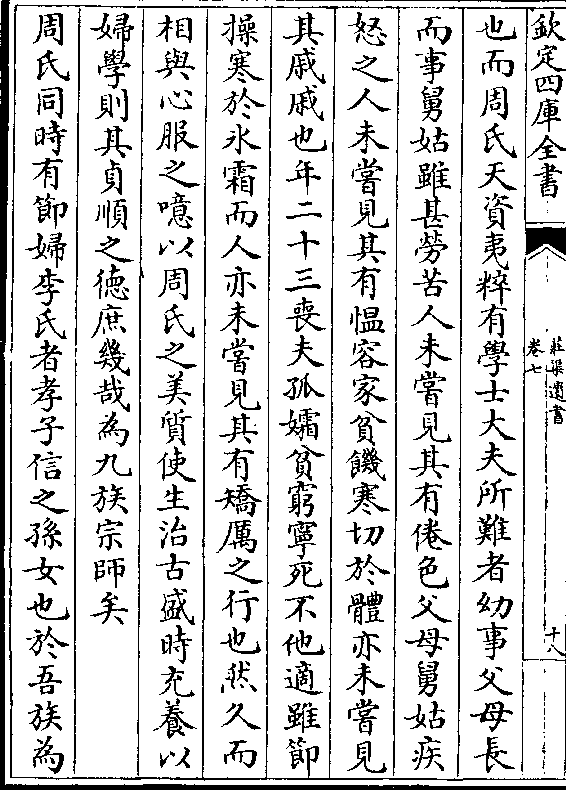 欽定四庫全書
莊渠遺書
卷七
十八
也而周氏天資夷粹有學士大夫所難者幼事父母長
而事舅姑雖甚勞苦人未嘗見其有倦色父母舅姑疾
怒之人未嘗見其有愠容家貧饑寒切於體亦未嘗見
其戚戚也年二十三喪夫孤孀貧窮寧死不他適雖節
操寒於氷霜而人亦未嘗見其有矯厲之行也然久而
相與心服之噫以周氏之美質使生治古盛時充養以
婦學則其貞順之徳庶幾哉為九族宗師矣
周氏同時有節婦李氏者孝子信之孫女也於吾族為